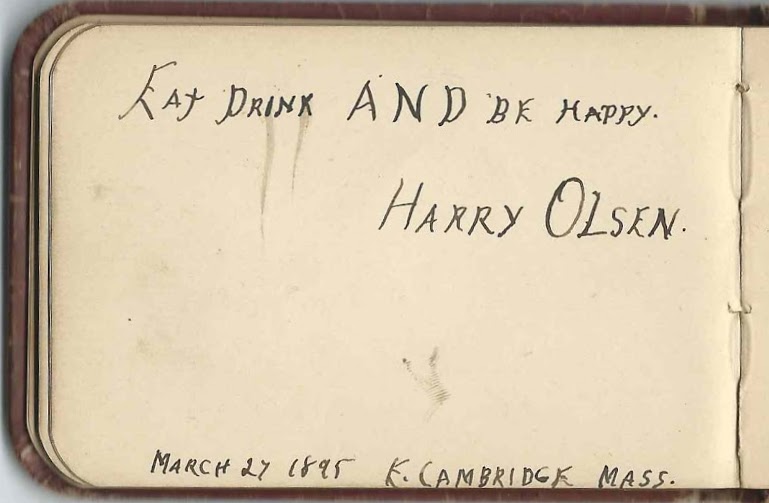 EAT DRINK AND BE HAPPY.
HARRY OLSEN.
MARCH 27 1895 E. CAMBRIDGE MASS.